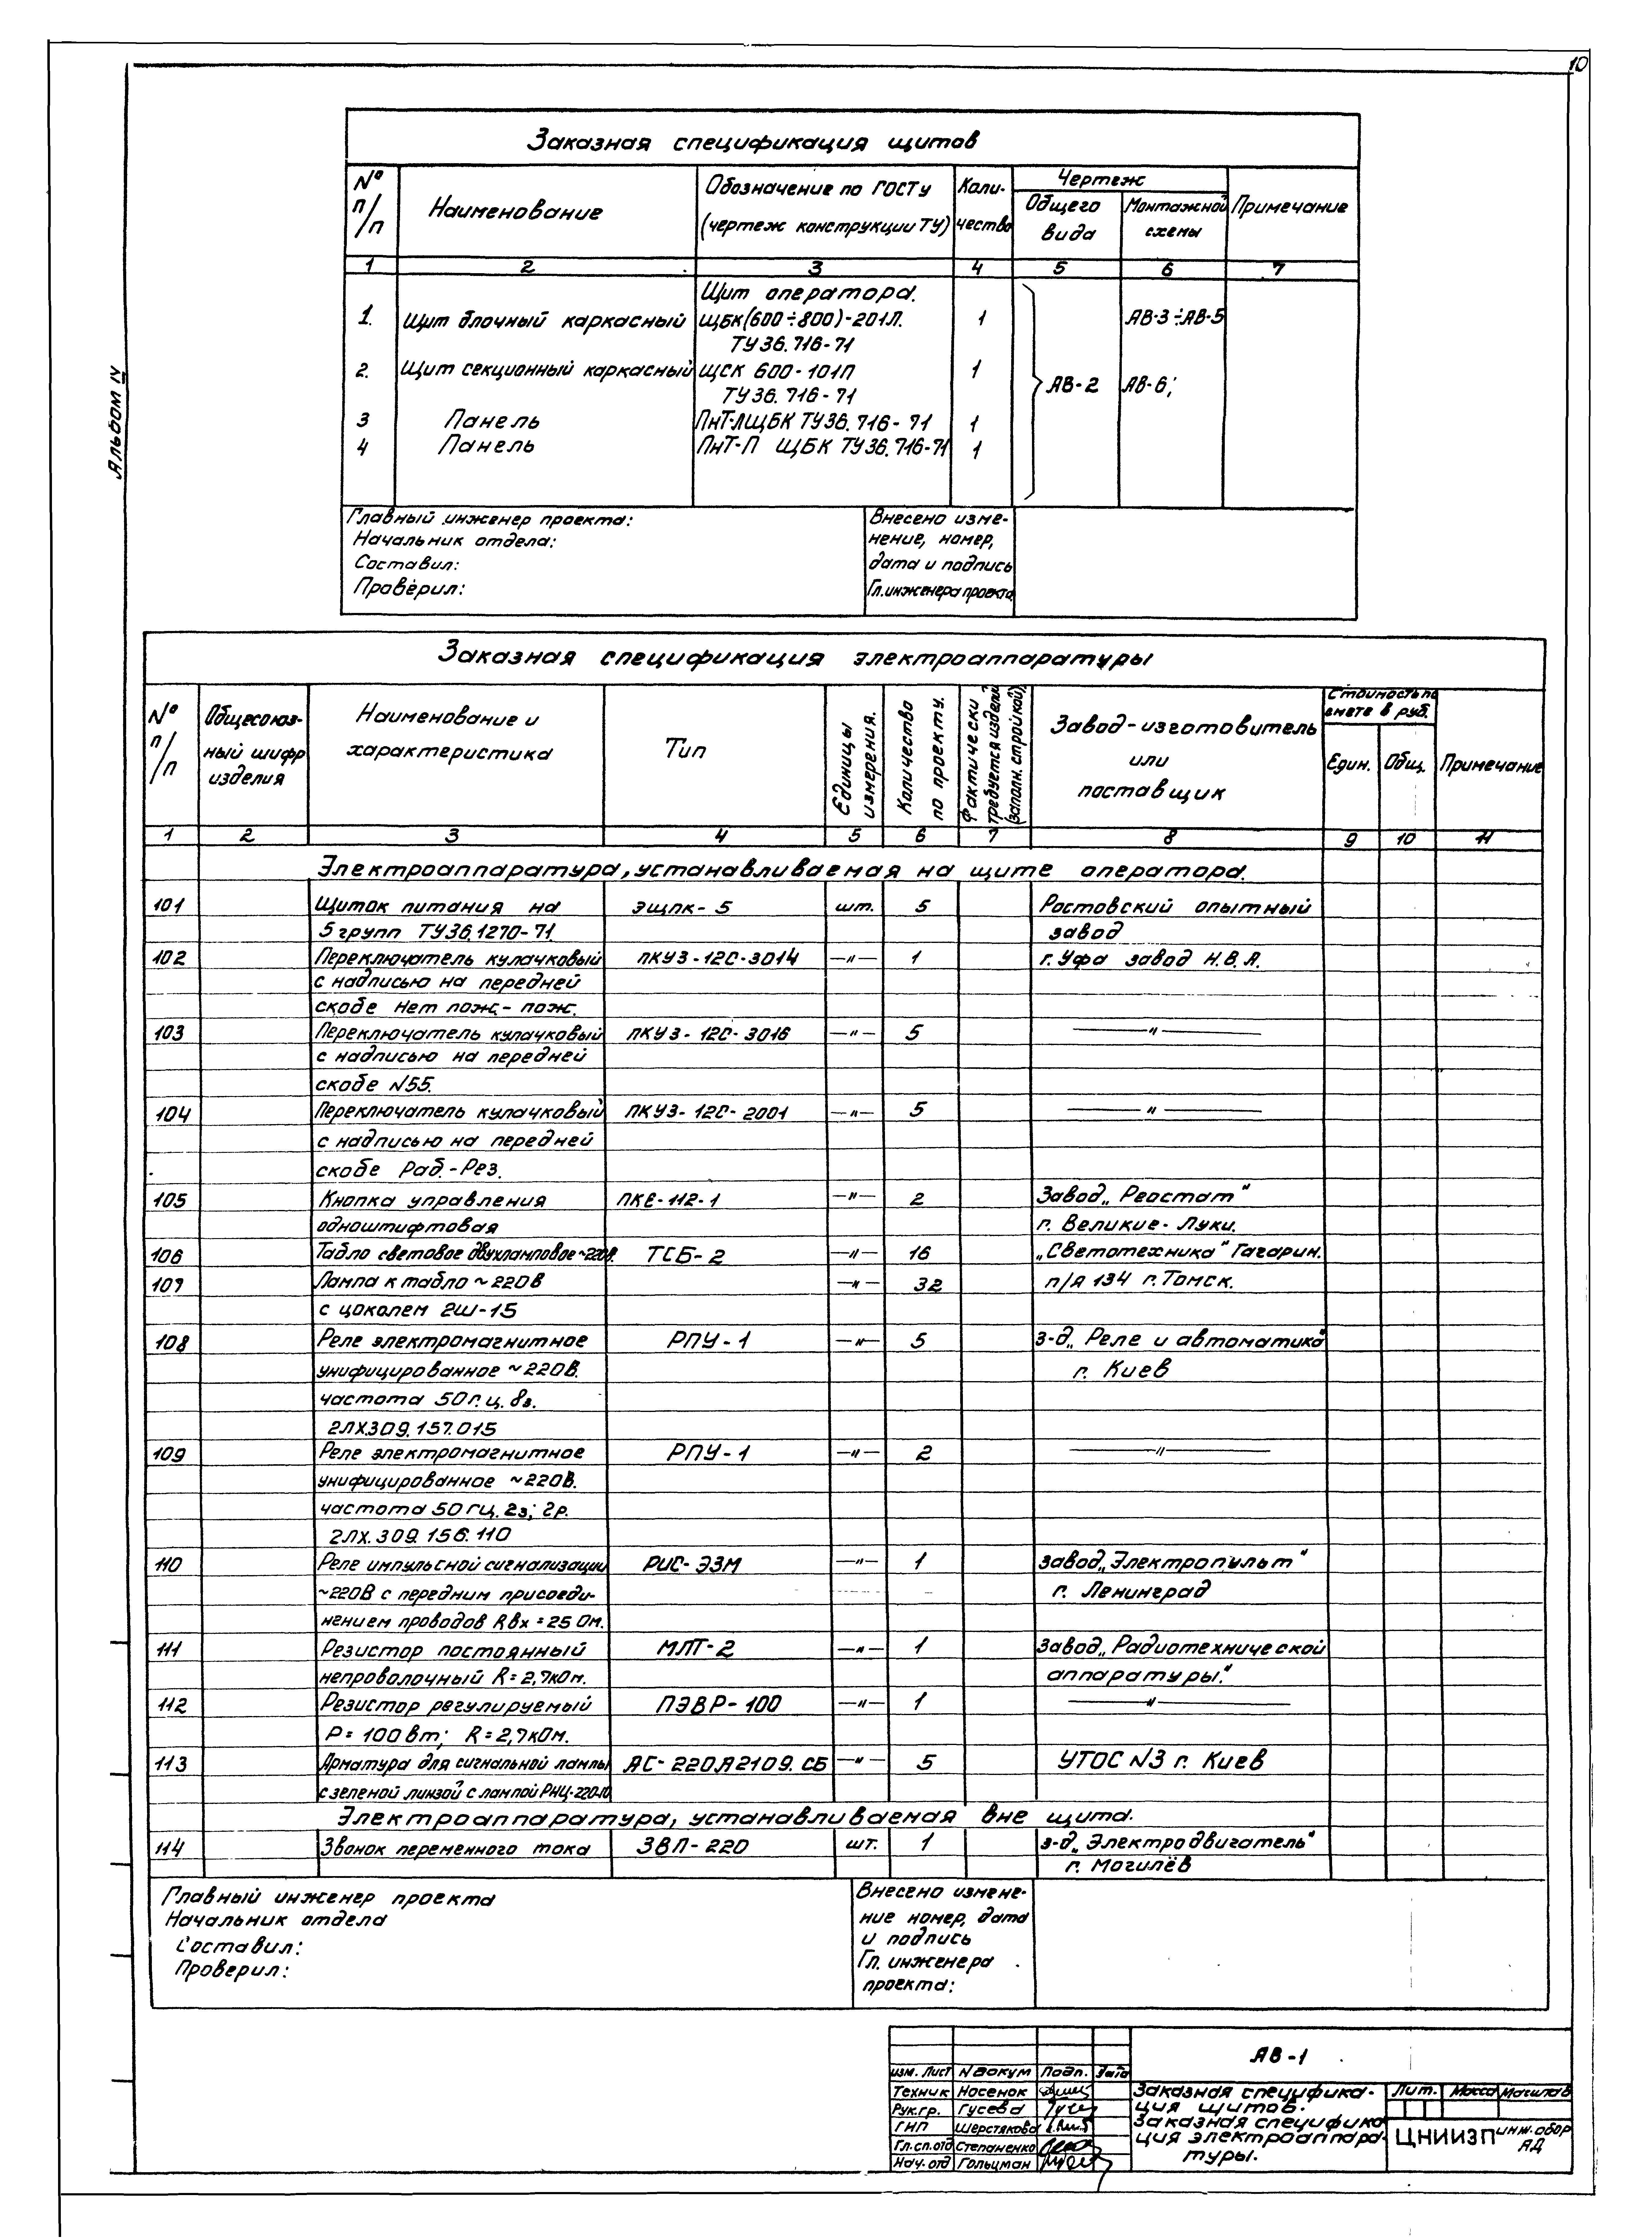 10
Альбом IV
Заказная спецификация щитов
№ п/п
Наименование
Обозначение по ГОСТу (чертеж конструкции ТУ)
Коли-чество
Чертеж
Общего вида
Монтажной схемы
Примечание
1 2 3 4 5 6 7
Щит оператора.
1. Щит блочный каркасный ЩБК(600÷800)-201Л. 1 АВ-3÷АВ-5
ТУ36.716-71
2. Щит секционный каркасный ЩСК 600-101П 1
АВ-2 АВ-6;
ТУ36.716-71
3 Панель ПнТ-ЛЩБК ТУ36.716-71 1
4 Панель ПнТ-П ЩБК ТУ36.716-71 1
Главный инженер проекта:
Начальник отдела:
Составил:
Проверил:
Внесено изме-
нение, номер,
дата и подпись
Гл.инженера проекта
Заказная спецификация электроаппаратуры
№ п/п
Общесоюз-
ный шифр
изделия
Наименование и
характеристика
Тип
Единицы измерения.
Количество по проекту.
Фактически требуется изделий (заполн. стройкой)
Завод-изготовитель
или
поставщик
Стоимость по
смете в руб.
Един. Общ.
Примечание
1 2 3 4 5 6 7 8 9 10 11
Электроаппаратура, устанавливаемая на щите оператора.
101 Щиток питания на ЭЩПК-5 шт. 5 Ростовский опытный
5 групп ТУ36.1270-71. завод
102 Переключатель кулачковый ПКУ3-12С-3014 —"— 1 г. Уфа завод Н.В.А.
с надписью на передней
скобе Нет пож.- пож.
103 Переключатель кулачковый ПКУ3-12С-3016 —"— 5 —"—
с надписью на передней
скобе N55.
104 Переключатель кулачковый ПКУ3-12С-2001 —"— 5 —"—
с надписью на передней
скобе Раб.-Рез.
105 Кнопка управления ПКЕ-112-1 —"— 2 Завод „Реостат"
одноштифтовая г. Великие-Луки.
106 Табло световое двухламповое ~220В. ТСБ-2 —"— 16 „Светотехника" Гагарин.
107 Лампа к табло ~220В —"— 32 п/я 134 г. Томск.
с цоколем 2Ш-15
108 Реле электромагнитное РПУ-1 —"— 5 з-д „Реле и автоматика"
унифицированное ~220В. г. Киев
частота 50г.ц. 8з.
2ЛХ.309.157.015
109 Реле электромагнитное РПУ-1 —"— 2 —"—
унифицированное ~220В.
частота 50гц. 2з; 2р.
2ЛХ.309.156.110
110 Реле импульсной сигнализации РИС-ЭЗМ —"— 1 завод „Электропульт"
~220В с передним присоеди- г. Ленинград
нением проводов Rвх = 25 Ом.
111 Резистор постоянный МЛТ-2 —"— 1 Завод „Радиотехнической
непроволочный R=2,7кОм. аппаратуры."
112 Резистор регулируемый ПЭВР-100 —"— 1 —"—
Р=100вт; R=2,7кОм.
113 Арматура для сигнальной лампы АС-220Я2109.СБ —"— 5 УТОС N3 г. Киев
с зеленой линзой с лампой РНЦ-220-10
Электроаппаратура, устанавливаемая вне щита.
114 Звонок переменного тока ЗВП-220 шт. 1 з-д „Электродвигатель"
г. Могилёв
Главный инженер проекта
Начальник отдела
Составил:
Проверил:
Внесено измене-
ние номер, дата
и подпись
Гл. инженера
проекта:
АВ-1
изм. Лист N докум Подп. Дата
Техник Носенок
Рук.гр. Гусева
ГИП Шерстякова
Гл.сп.отд Степаненко
Нач.отд Гольцман
Заказная специфика-
ция щитов.
Заказная специфика
ция электроаппара-
туры.
Лит. Масса Масштаб
ЦНИИЭП инж. обор